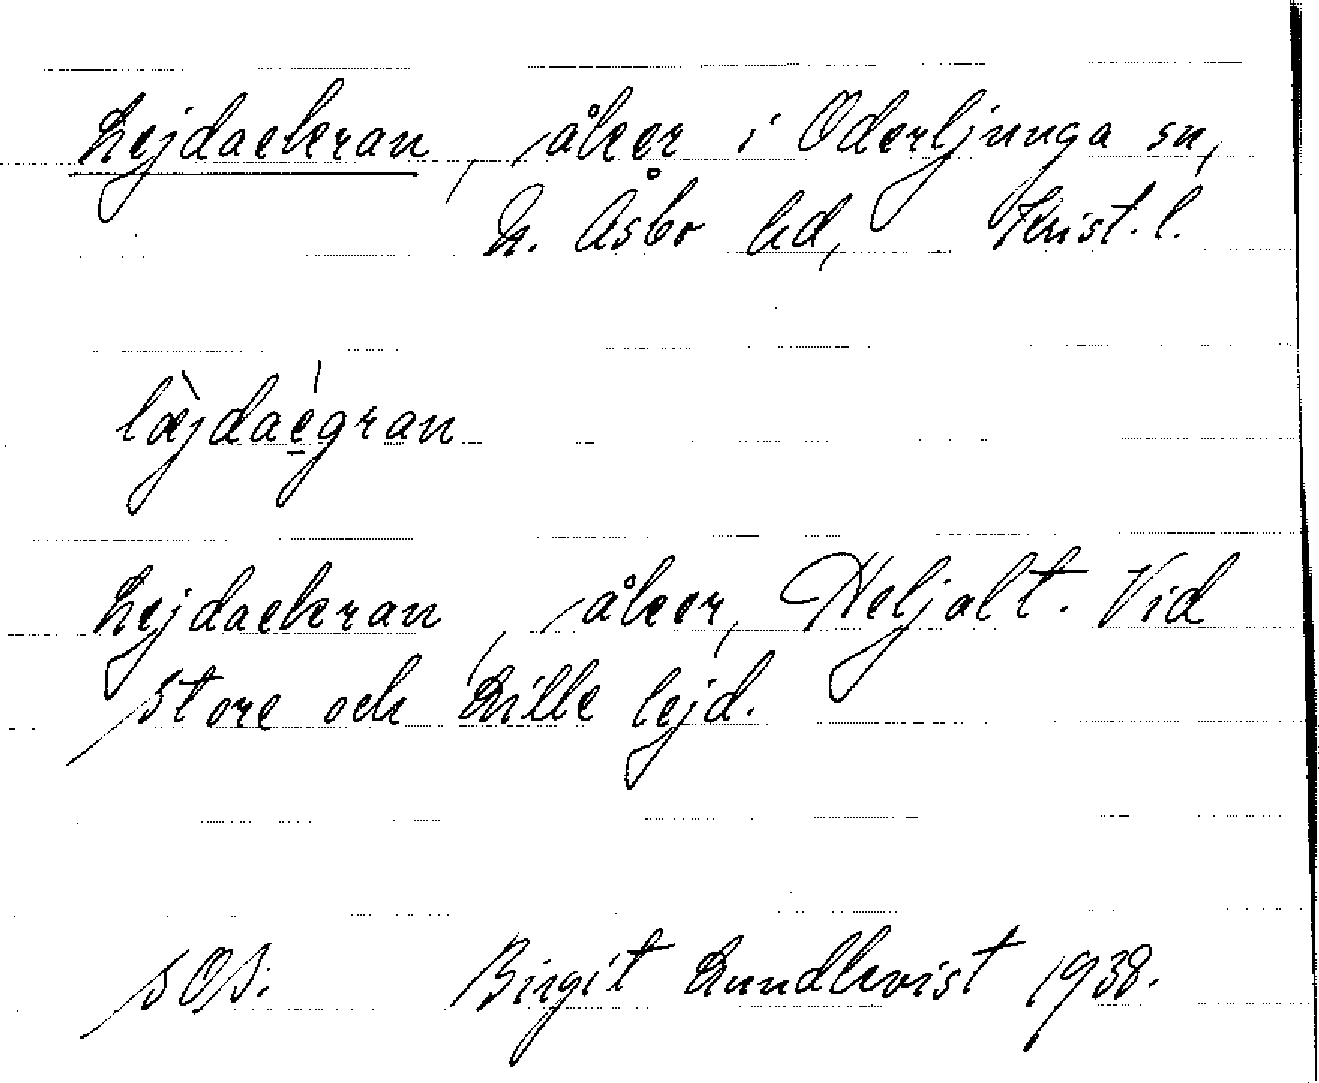 Lejdaekran, åker i Oderljunga sn,
N. Åsbo hd, Krist. l.
læ̀jdaégran
Lejdaekran, åker, Heljalt. Vid
Store och Lille lejd.
SOS. Birgit Lundkvist 1938.